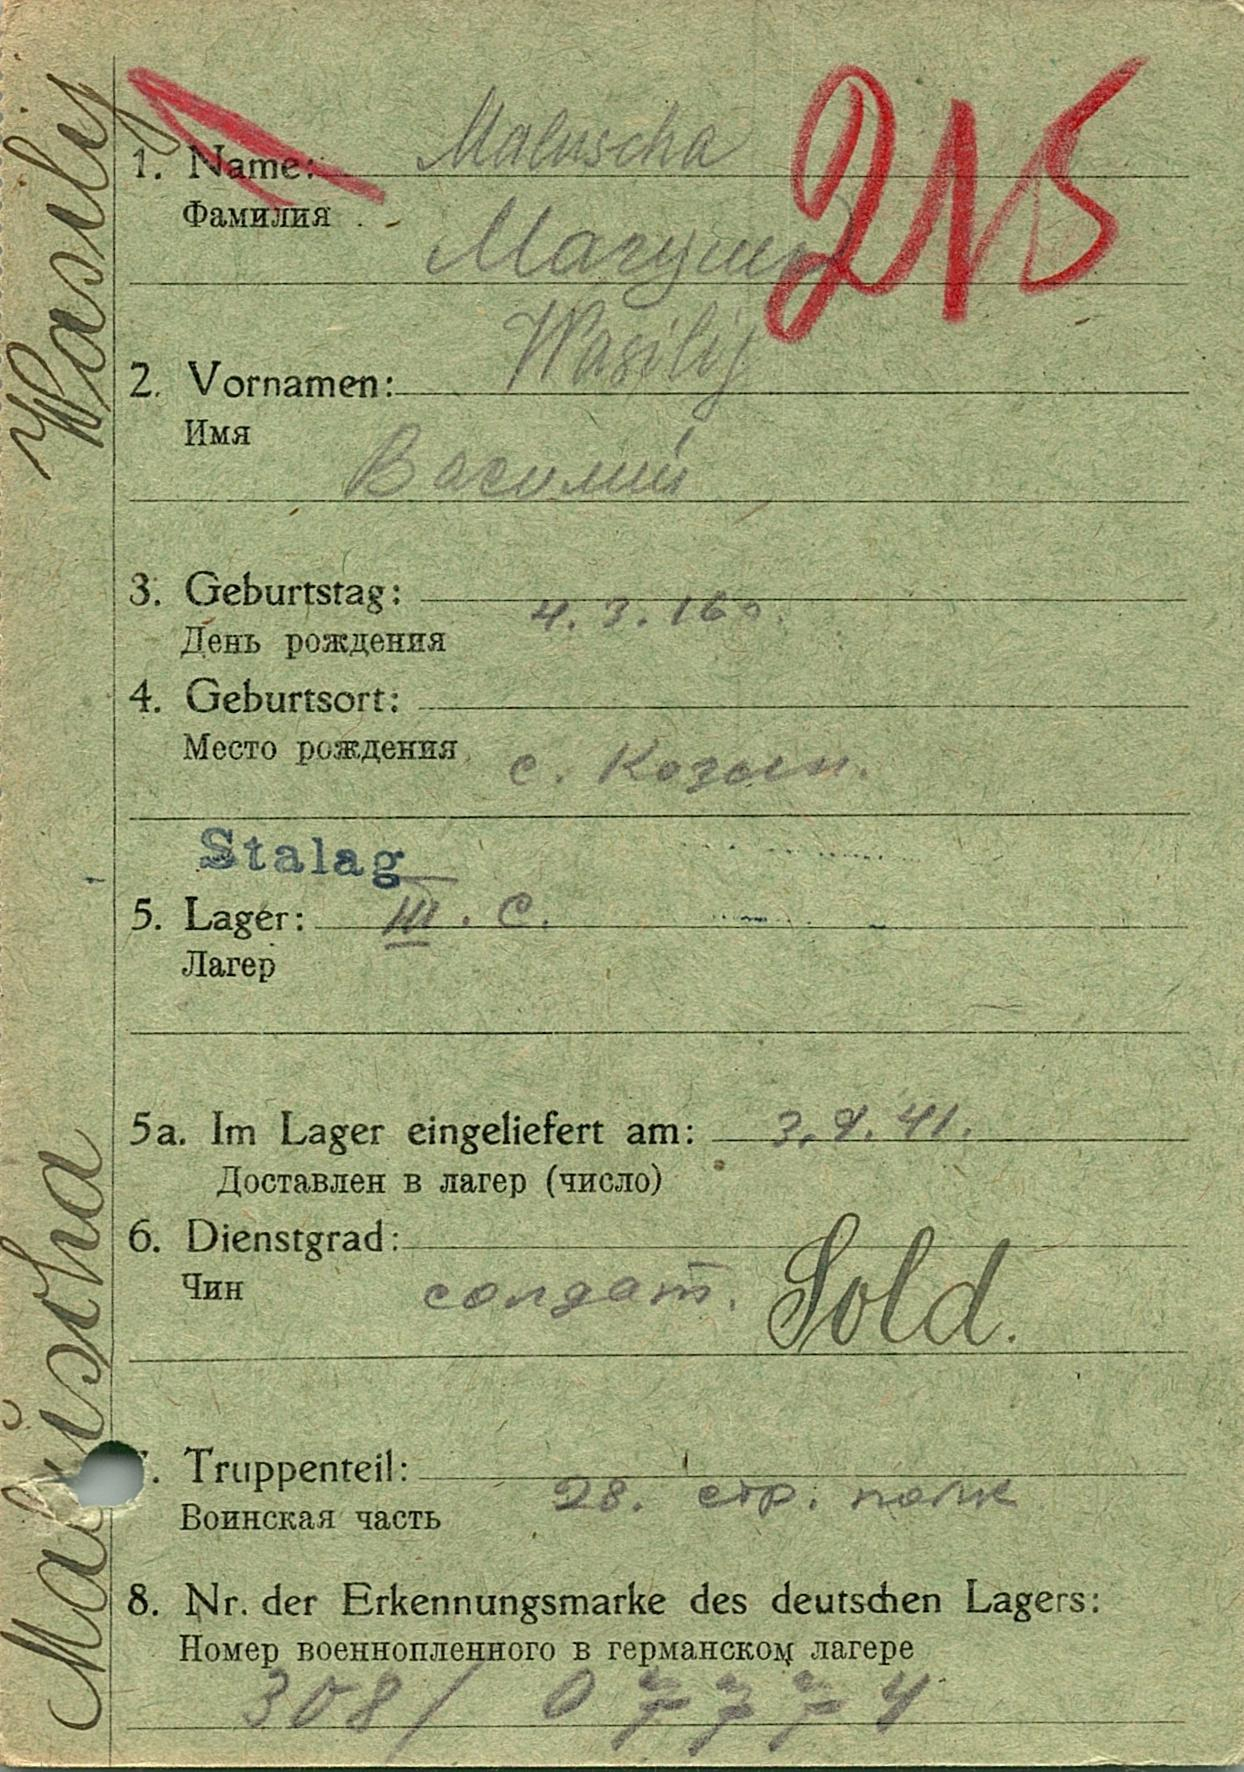 215
1. Name: Maluscha
Фамилия
2. Vornamen: Wasilij
Имя
Василий
3. Geburtstag:
День рождения 4. 3. 16
4. Geburtsort:
Место рождения с.
Stalag
5. Lager: III. C.
Лагер
5a. Im Lager eingeliefert am: 3. 9. 41.
Доставлен в лагер (число)
6. Dienstgrad:
Чин солдат. Sold.
7. Truppenteil:
Воинская часть 28. стр. полк
8. Nr. der Erkennungsmarke des deutschen Lagers:
Номер военнопленного в германском лагере
308/ 07774
Maluscha Wasilij